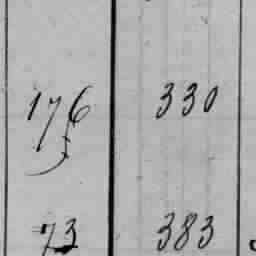 176 330
73 383